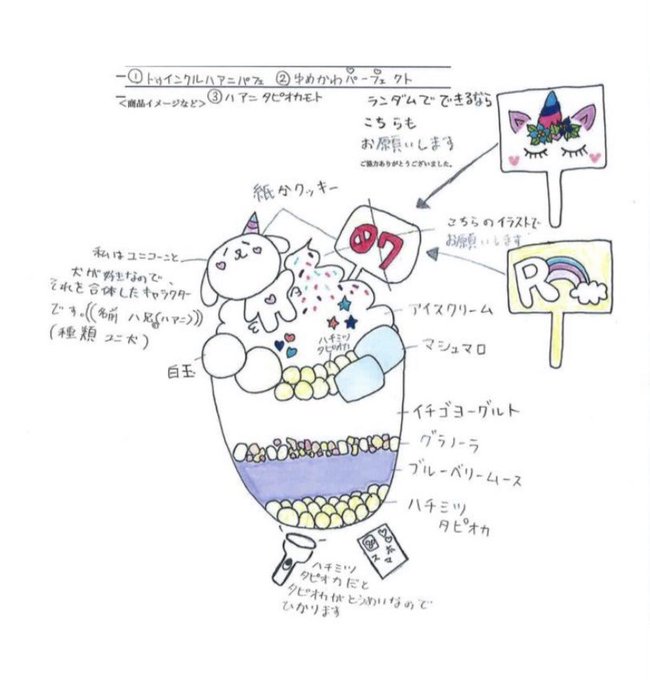 ①トゥインクルハアニパフェ ②ゆめかわパーフェクト
<商品イメージなど> ③ハアニタピオカモト
ランダムでできるなら
こちらも
お願いします
ご協力ありがとうございました。
紙分クッキー
こちらのイラストで
お願いします
私はユニコーンと
犬が好きなので、
それを合体したキャラクター
です。
(種類 ユニ犬)
アイスクリーム
ハチミツ
タピオカ
マシュマロ
白玉
イチゴヨーグルト
グラノーラ
ブルーベリームース
ハチミツ
タピオカ
R
ハチミツ
タピオカだと
タピオカがとうめいなので
ひかります